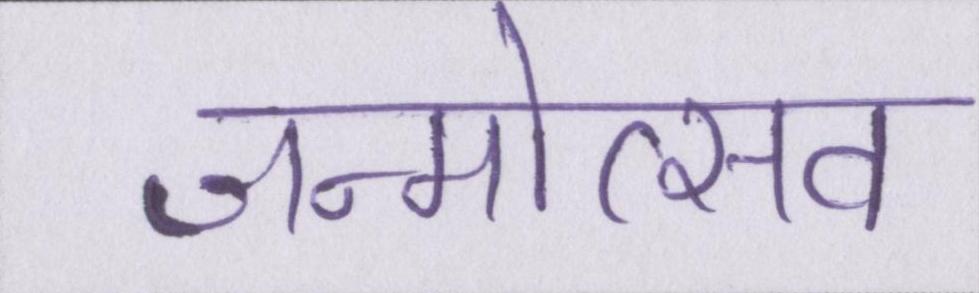 जन्मोत्सव